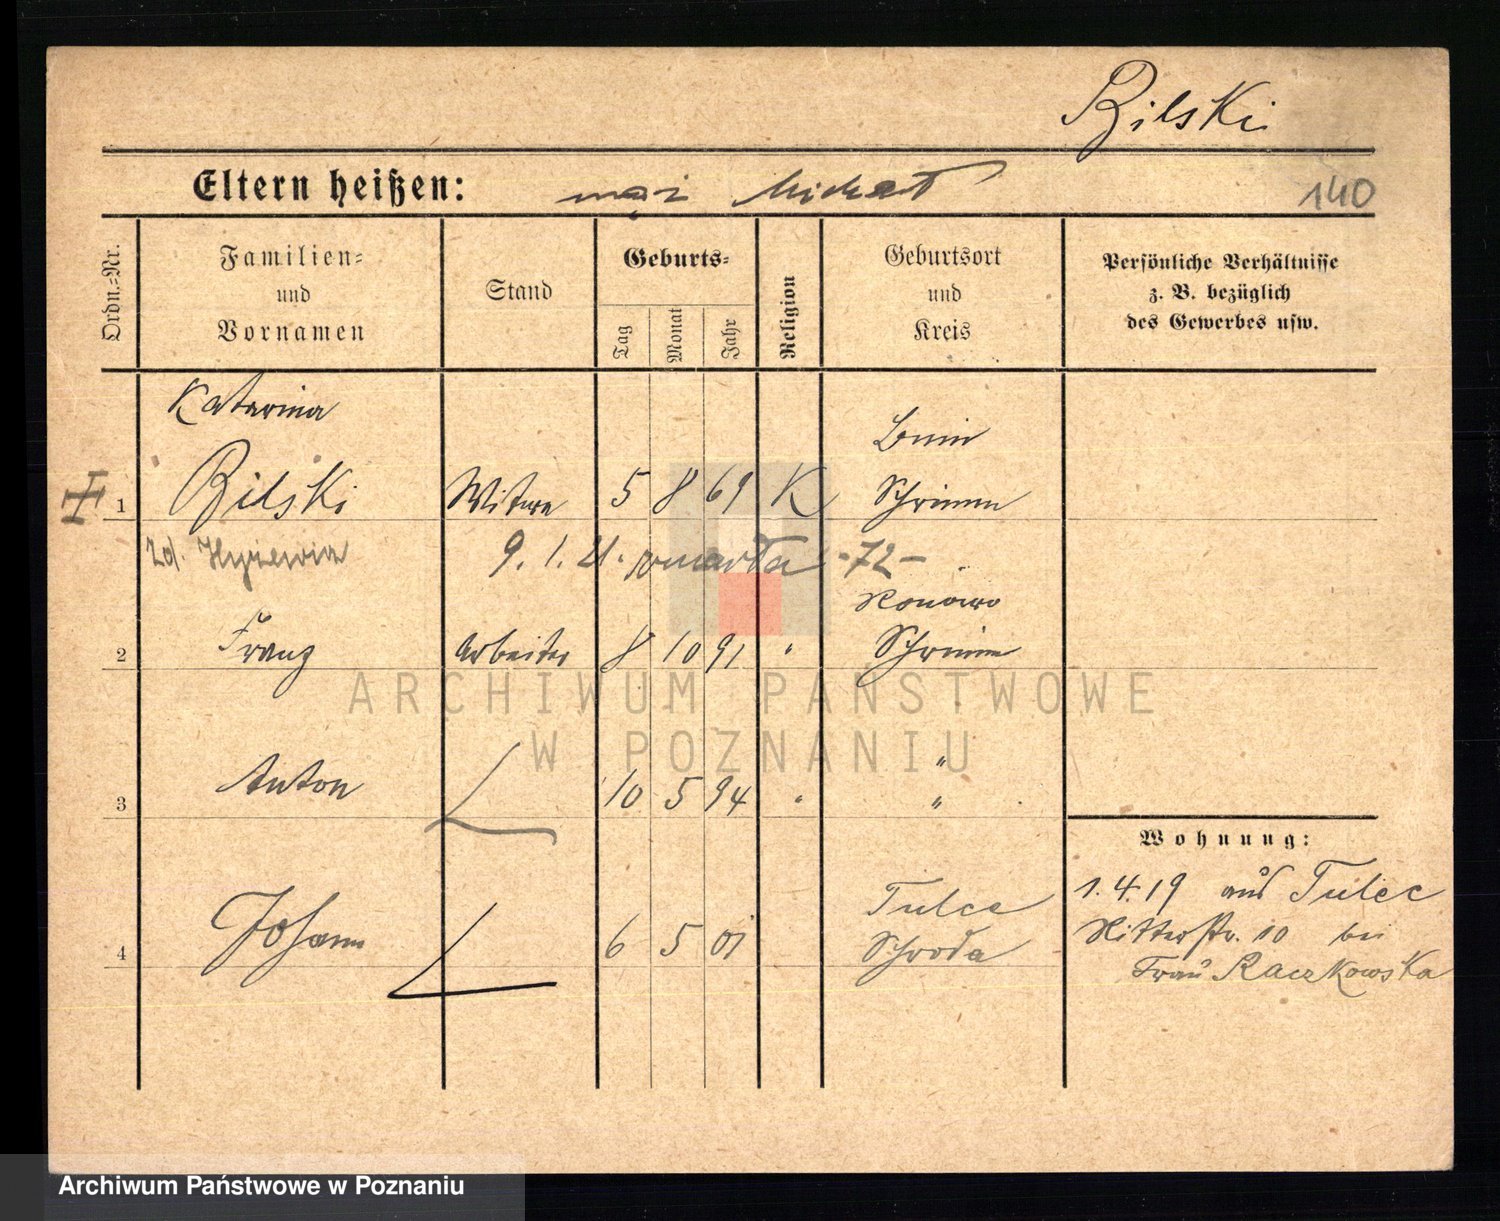 Bilski
Eltern heißen: mąż Michał 140
Ordn.-Nr.
Familien-
und
Vornamen
Stand
Geburts-
Tag
Monat
Jahr
Religion
Geburtsort
und
Kreis
Persönliche Verhältnisse
z. B. bezüglich
des Gewerbes usw.
Katarina
Bnin
1 Bilski Witwe 5 8 69 K Schrimm
zd. 9. 1. 21. zmarła -72-
Konowo
2 Franz Arbeiter 8 10 91 " Schrimm
"
3 Anton 10 5 94 " "
Wohnung:
Tulce
1.4.19 aus Tulce
4 Johann 6 5 01 Schroda
Ritterstr. 10 bei
Frau Raczkowska
ARCHIWUM PAŃSTWOWE
W POZNANIU
Archiwum Państwowe w Poznaniu